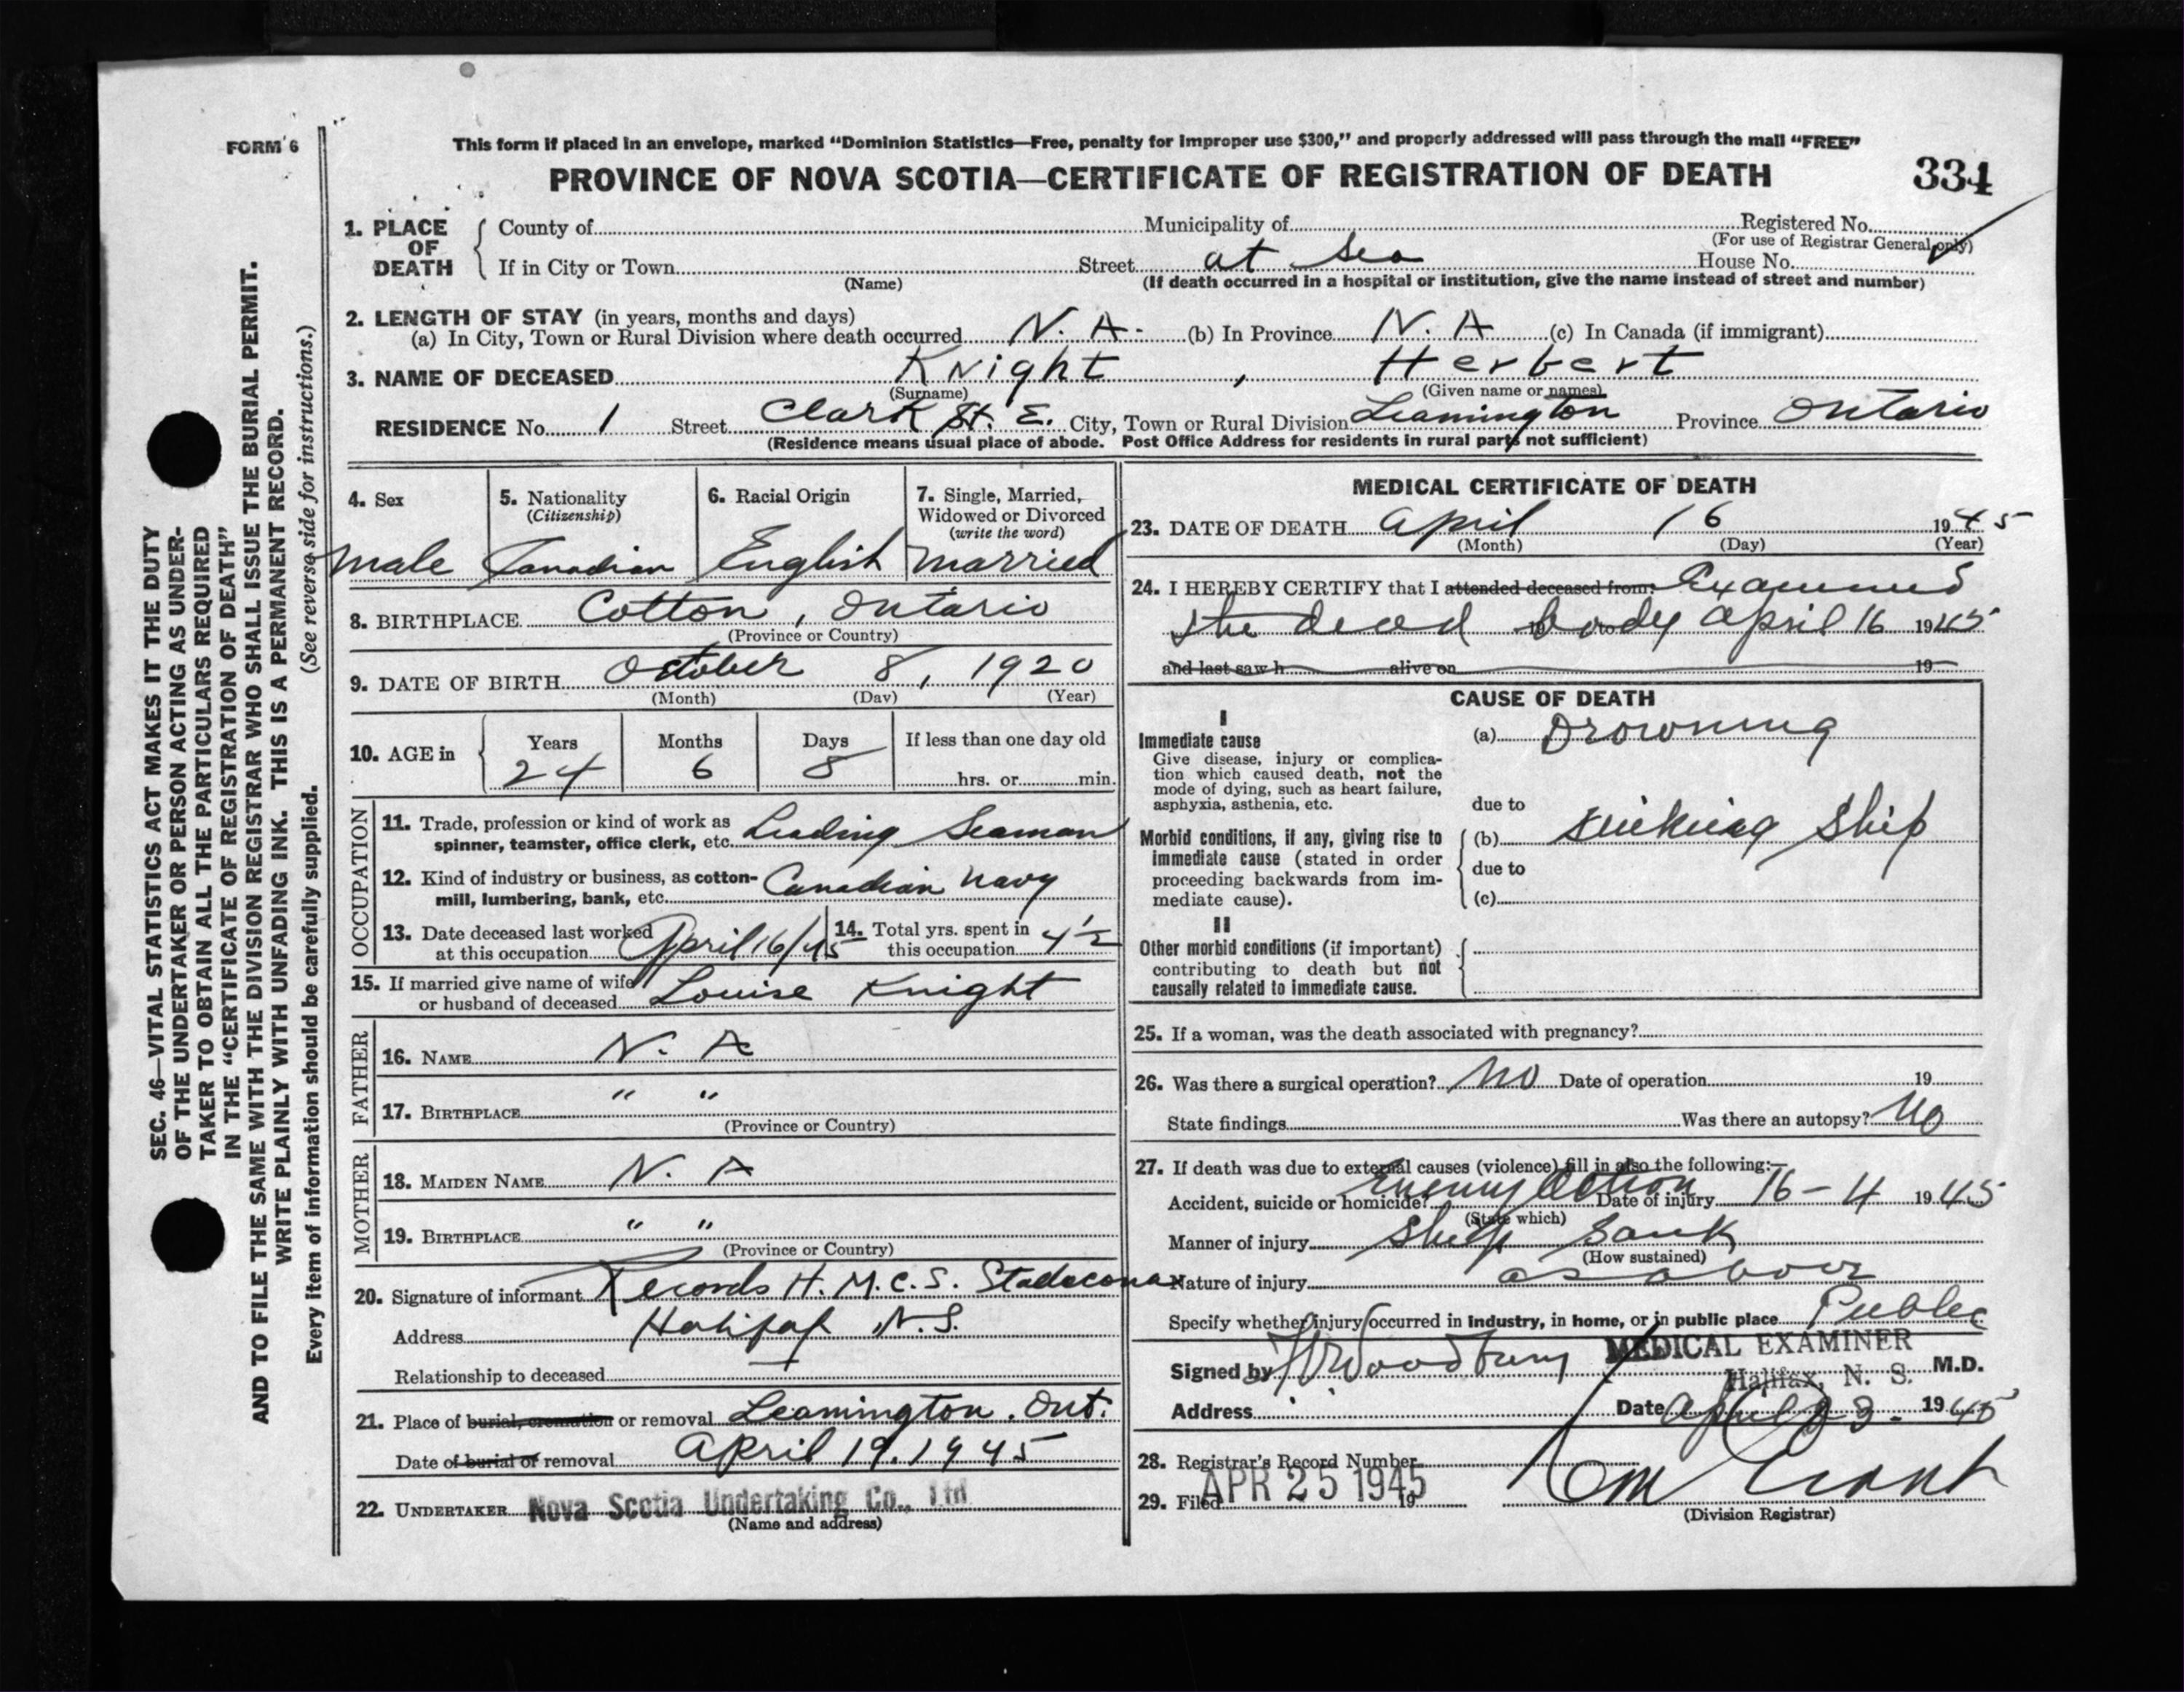 FORM 6
This form if placed in an envelope, marked “Dominion Statistics—Free, penalty for improper use $300,” and properly addressed will pass through the mail “FREE”
PROVINCE OF NOVA SCOTIA—CERTIFICATE OF REGISTRATION OF DEATH
334
1. PLACE OF DEATH
County of Municipality of Registered No.
(For use of Registrar General only)
If in City or Town Street at sea House No.
(Name) (If death occurred in a hospital or institution, give the name instead of street and number)
2. LENGTH OF STAY (in years, months and days)
(a) In City, Town or Rural Division where death occurred N. A. (b) In Province N. A (c) In Canada (if immigrant)
3. NAME OF DECEASED Knight , Herbert
(Surname) (Given name or names)
RESIDENCE No. 1 Street Clark St. E. City, Town or Rural Division Leamington Province Ontario
(Residence means usual place of abode. Post Office Address for residents in rural parts not sufficient)
4. Sex
male
5. Nationality
(Citizenship)
Canadian
6. Racial Origin
English
7. Single, Married,
Widowed or Divorced
(write the word)
married
8. BIRTHPLACE Cotton, Ontario
(Province or Country)
9. DATE OF BIRTH October 8, 1920
(Month) (Day) (Year)
10. AGE in
Years Months Days If less than one day old
24 6 8 hrs. or min.
OCCUPATION
11. Trade, profession or kind of work as
spinner, teamster, office clerk, etc. Leading Seaman
12. Kind of industry or business, as cotton-
mill, lumbering, bank, etc. Canadian Navy
13. Date deceased last worked
at this occupation April 16/45
14. Total yrs. spent in
this occupation 4 1/2
15. If married give name of wife
or husband of deceased Louise Knight
FATHER
16. NAME N. A
17. BIRTHPLACE " "
(Province or Country)
MOTHER
18. MAIDEN NAME N. A
19. BIRTHPLACE " "
(Province or Country)
20. Signature of informant Records H.M.C.S. Stadacona
Address Halifax N.S.
Relationship to deceased
21. Place of burial, cremation or removal Leamington. Ont.
Date of burial or removal April 19. 1945
22. UNDERTAKER Nova Scotia Undertaking Co., Ltd
(Name and address)
MEDICAL CERTIFICATE OF DEATH
23. DATE OF DEATH April 16 1945
(Month) (Day) (Year)
24. I HEREBY CERTIFY that I attended deceased from: Examined
the dead body April 16 1945
and last saw h alive on 19
CAUSE OF DEATH
I
Immediate cause
Give disease, injury or complica-
tion which caused death, not the
mode of dying, such as heart failure,
asphyxia, asthenia, etc.
(a) Drowning
due to
Morbid conditions, if any, giving rise to
immediate cause (stated in order
proceeding backwards from im-
mediate cause).
(b) sinking ship
due to
(c)
II
Other morbid conditions (if important)
contributing to death but not
causally related to immediate cause.
25. If a woman, was the death associated with pregnancy?
26. Was there a surgical operation? No Date of operation 19
State findings Was there an autopsy? No
27. If death was due to external causes (violence) fill in also the following:—
Accident, suicide or homicide? Enemy Action Date of injury 16-4 1945
(State which)
Manner of injury Ship Sank
(How sustained)
Nature of injury as above
Specify whether injury occurred in industry, in home, or in public place Public
Signed by Woodbury MEDICAL EXAMINER M.D.
Halifax, N. S.
Address Date April 23. 1945
28. Registrar's Record Number
29. Filed APR 25 1945 19
(Division Registrar)
SEC. 46—VITAL STATISTICS ACT MAKES IT THE DUTY
OF THE UNDERTAKER OR PERSON ACTING AS UNDER-
TAKER TO OBTAIN ALL THE PARTICULARS REQUIRED
IN THE “CERTIFICATE OF REGISTRATION OF DEATH”
AND TO FILE THE SAME WITH THE DIVISION REGISTRAR WHO SHALL ISSUE THE BURIAL PERMIT.
WRITE PLAINLY WITH UNFADING INK. THIS IS A PERMANENT RECORD.
Every item of information should be carefully supplied. (See reverse side for instructions.)